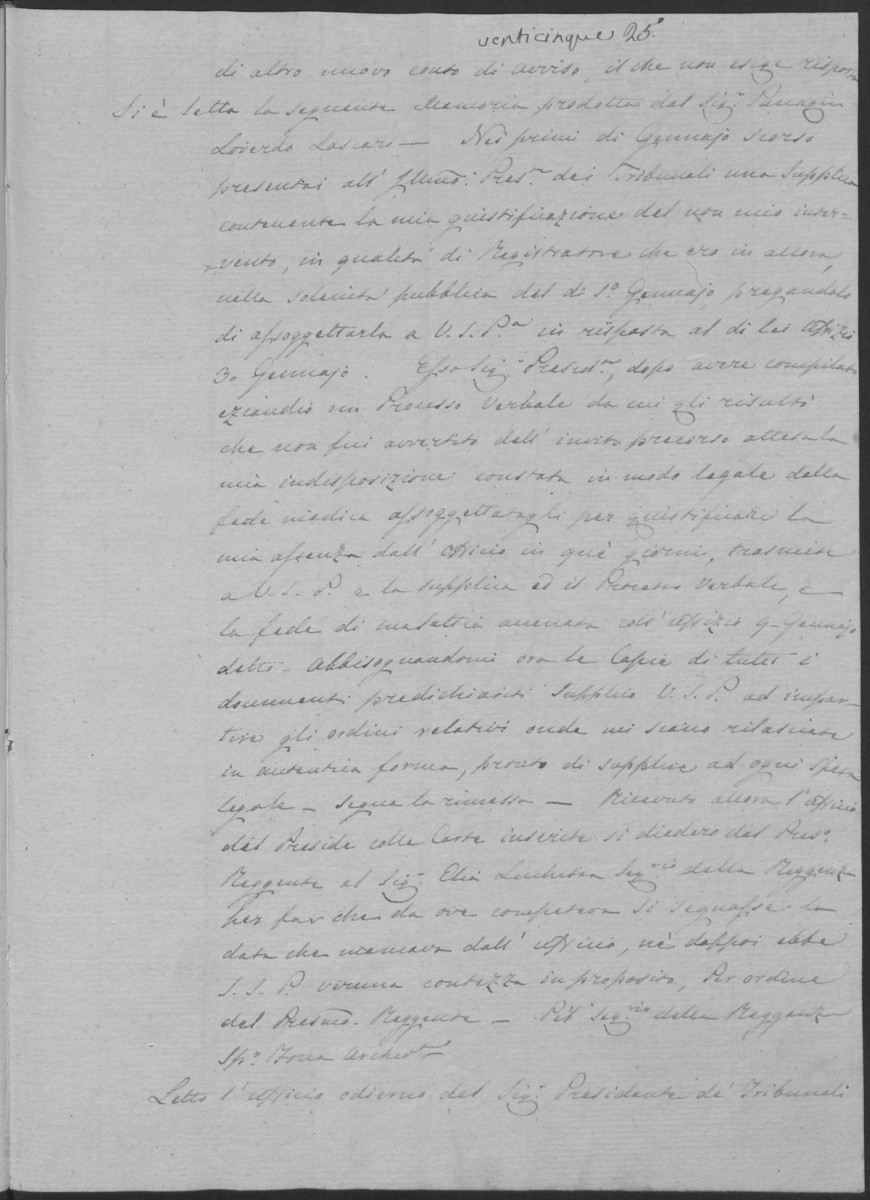 venticinque 25.
di altro nuovo conto di avviso, il che non esige risposta
Si è letta la seguente Memoria prodotta dal Sigr. Panagin
Loverdo Lascari — Nei primi di Gennajo scorso
presentai all' Illmo: Preste. dei Tribunali una Supplica
contenente la mia giustificazione del non mio inter=
=vento, in qualità di Registratore che ero in allora,
nella solenità pubblica del dì 1o. Gennajo, pregandolo
di assoggettarla a V. S. Pa. in riisposta al di lei Offizio
3o Gennajo. Esso Sigr. Presidte., dopo avere compilato
eziandio un Processo Verbale da cui gli risultò
che non fui avvertito dell' invito precorso attesa la
mia indisposizione constata in modo legale dalla
fede medica assoggettatagli per giustificare la
mia assenza dall' Officio in què giorni, trasmise
a V. S. P. e la supplica ed il Processo Verbale, e
la fede di malattia annessa coll' Offizio 9 Gennajo
detto. Abbisognandomi ora le Copie di tutti i
documenti predichiariti Supplico V. S. P. ad impar=
tire gli ordini relativi onde mi siano rilasciate
in autentica forma, pronto di supplire ad ogni spesa
legale — segue la rimessa — Ricevuto allora l'Officio
del Preside colle Carte inserite si diedero dal Pres.
Reggente al Sigr. Elia Segrio. della Reggenza
per far che da ove competeva si segnasse la
data che mancava dall' Officio, nè dappoi ebbe
S. S. P. veruna contezza in proposito, Per ordine
del Presmo. Reggente — Pel Segrio della Reggenza
Spn. Archivta
Letto l'Officio odierno del Sigr. Presidente de' Tribunali